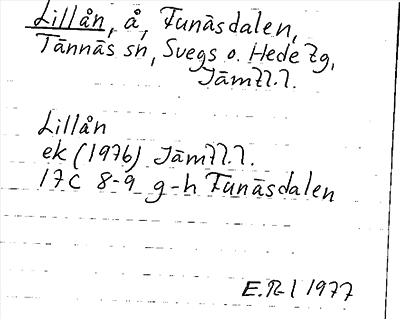 Lillån, å, Funäsdalen,
Tännäs sn, Svegs o. Hede tg,
Jämtl.l.
Lillån
ek (1976) Jämtl.l.
17C 8-9 g-h Funäsdalen
1977